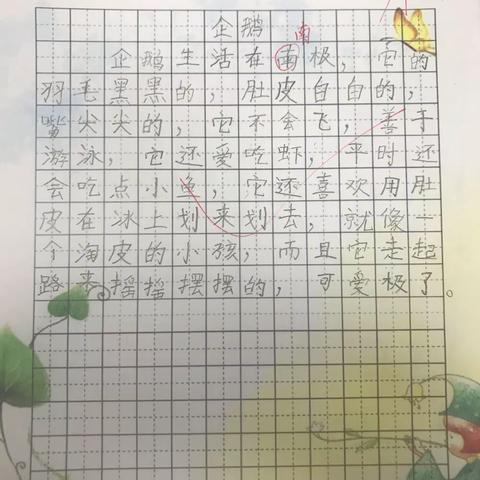 企鹅
南
企鹅生活在南极，它的
羽毛黑黑的，肚皮白白的，
嘴尖尖的，它不会飞，善于
游泳，它还爱吃虾，平时还
会吃点小鱼，它还喜欢用肚
皮在冰上划来划去，就像一
个淘皮的小孩，而且它走起
路来摇摇摆摆的，可爱极了。